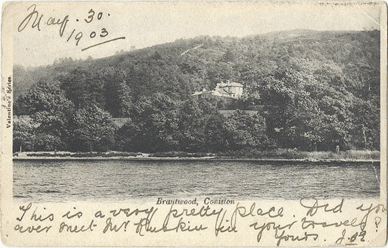 May. 30.
1903
Valentine's Series
Brantwood, Coniston
This is a very pretty place. Did you
ever meet Mr Ruskin in your travels?
Yours.